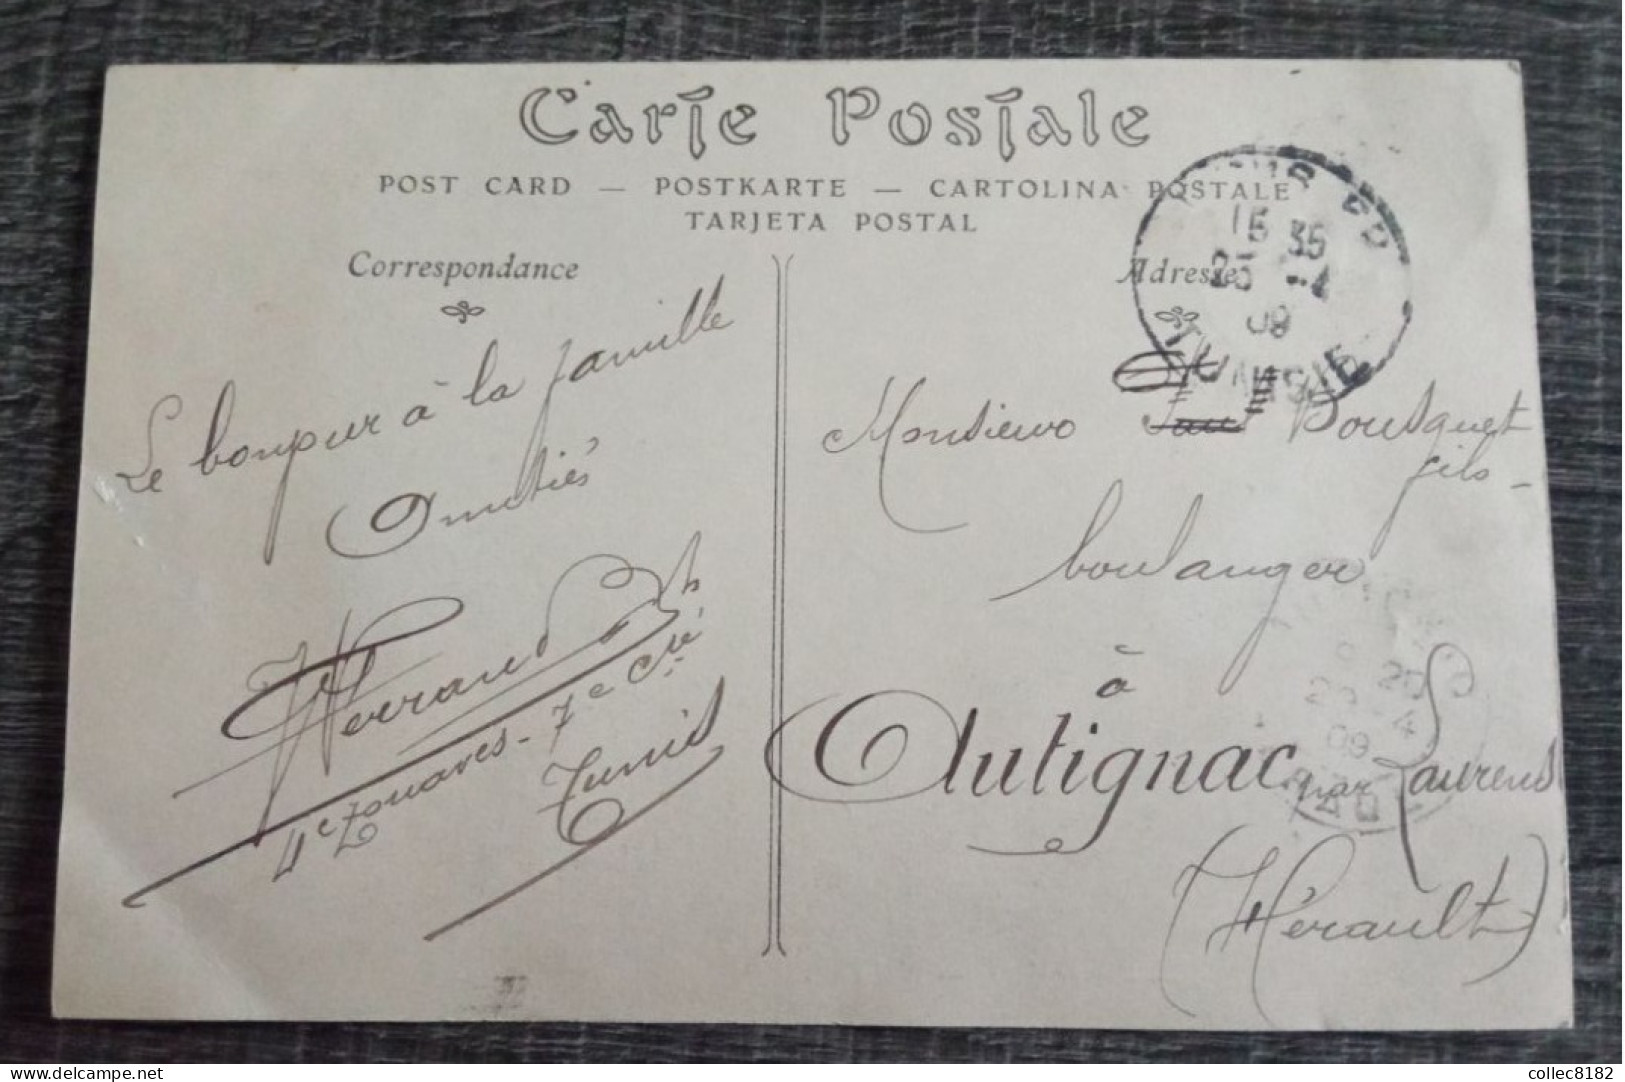 Carte Postale
POST CARD — POSTKARTE — CARTOLINA POSTALE
TARJETA POSTAL
Correspondance
Le bonjour à la famille
Amitiés
4e Zouaves - 7e Cie
Tunis
Adresse
15 35
09
TUNISIE
Monsieur Bousquet
fils -
boulanger
à
Autignac par Laurens
(Hérault)
20
4
09
delcampe.net
collec8182